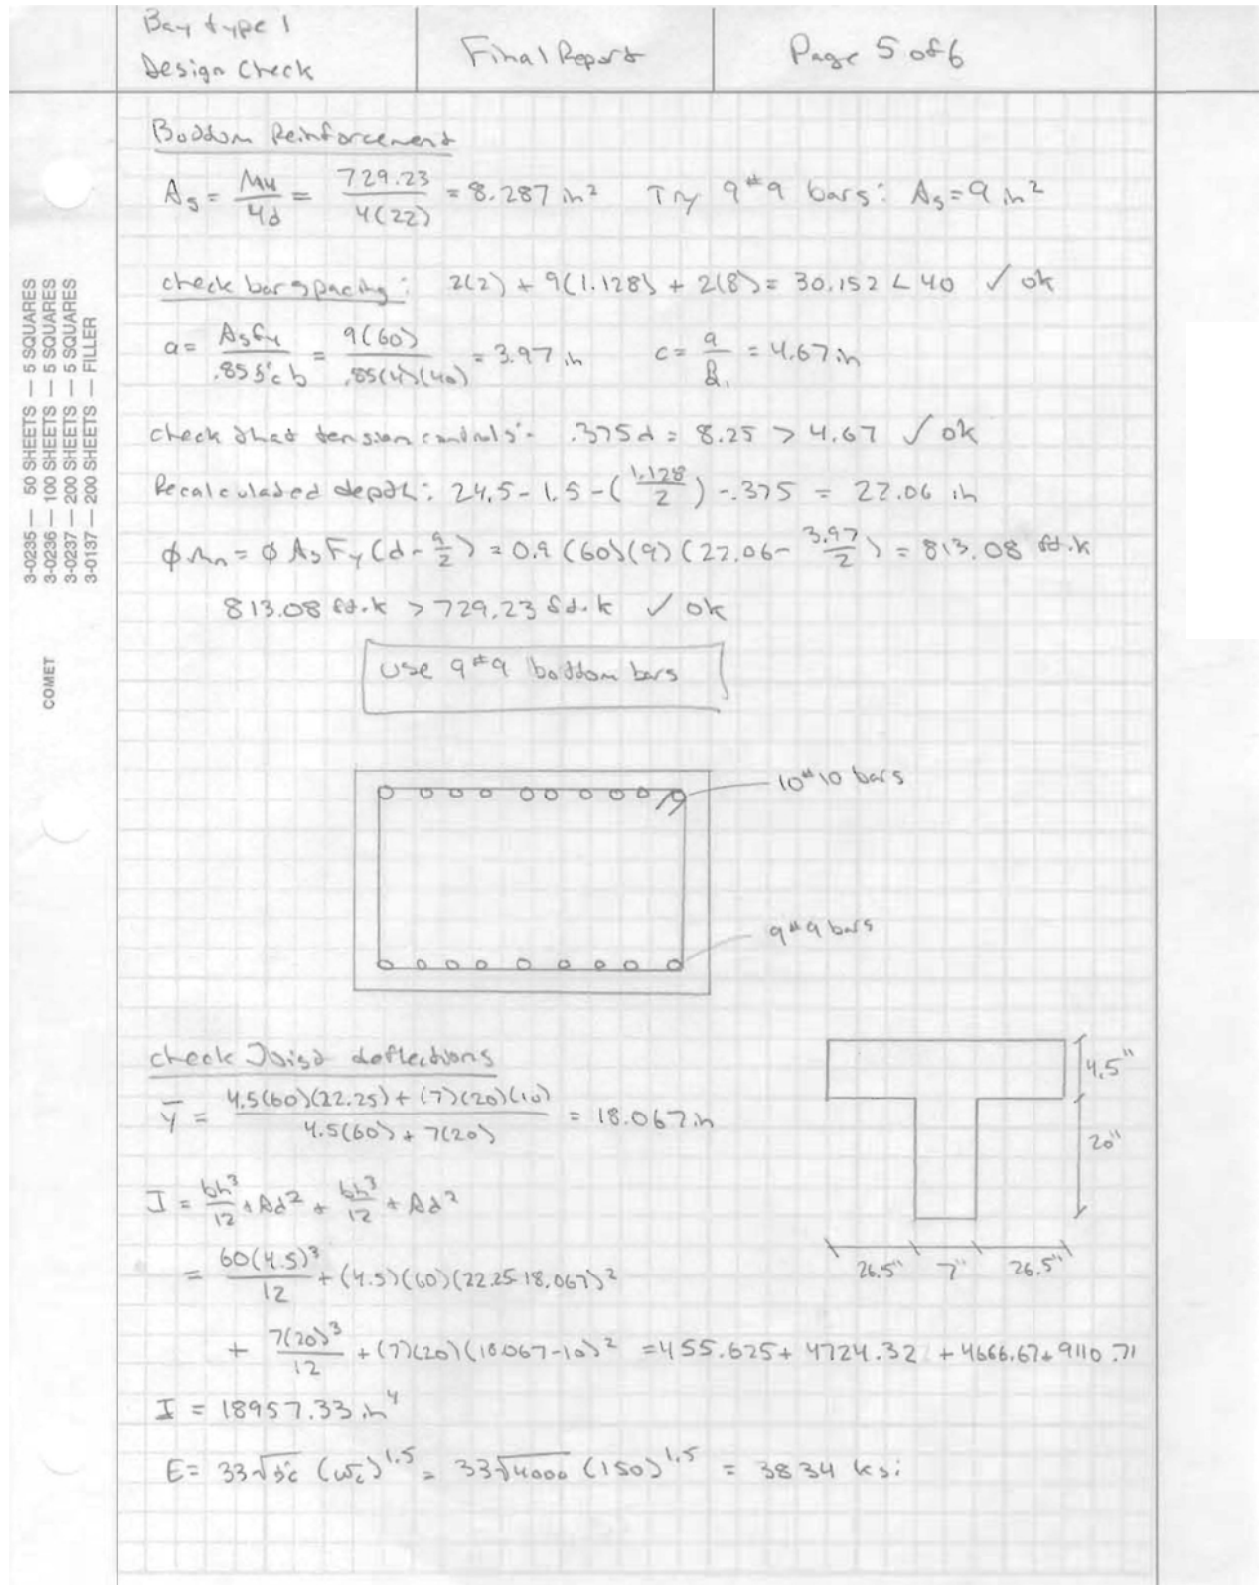 Bay type 1
Design Check
Final Report
Page 5 of 6
3-0235 — 50 SHEETS — 5 SQUARES
3-0236 — 100 SHEETS — 5 SQUARES
3-0237 — 200 SHEETS — 5 SQUARES
3-0137 — 200 SHEETS — FILLER
COMET
Bottom Reinforcement
As = Mu/4d = 729.23/4(22) = 8.287 in² Try 9 #9 bars: As = 9 in²
check bar spacing: 2(2) + 9(1.128) + 2(8) = 30.152 < 40 ✓ ok
a = Asfy/.85f'c b = 9(60)/.85(4)(40) = 3.97 in c = a/β₁ = 4.67 in
check that tension controls: .375d = 8.25 > 4.67 ✓ ok
Recalculated depth: 24.5 - 1.5 - (1.128/2) - .375 = 22.06 in
ϕMn = ϕ As Fy (d - a/2) = 0.9 (60)(9) (22.06 - 3.97/2) = 813.08 ft.k
813.08 ft.k > 729.23 ft.k ✓ ok
Use 9 #9 bottom bars
10 #10 bars
9 #9 bars
check Joist deflections
ȳ = 4.5(60)(22.25) + (7)(20)(10)/4.5(60) + 7(20) = 18.067 in
4.5"
20"
26.5" 7" 26.5"
I = bh³/12 + Ad² + bh³/12 + Ad²
= 60(4.5)³/12 + (4.5)(60)(22.25-18.067)²
+ 7(20)³/12 + (7)(20)(18.067-10)² = 455.625 + 4724.32 + 4666.67 + 9110.71
I = 18957.33 in⁴
E = 33√f'c (wc)^1.5 = 33√4000 (150)^1.5 = 3834 ksi